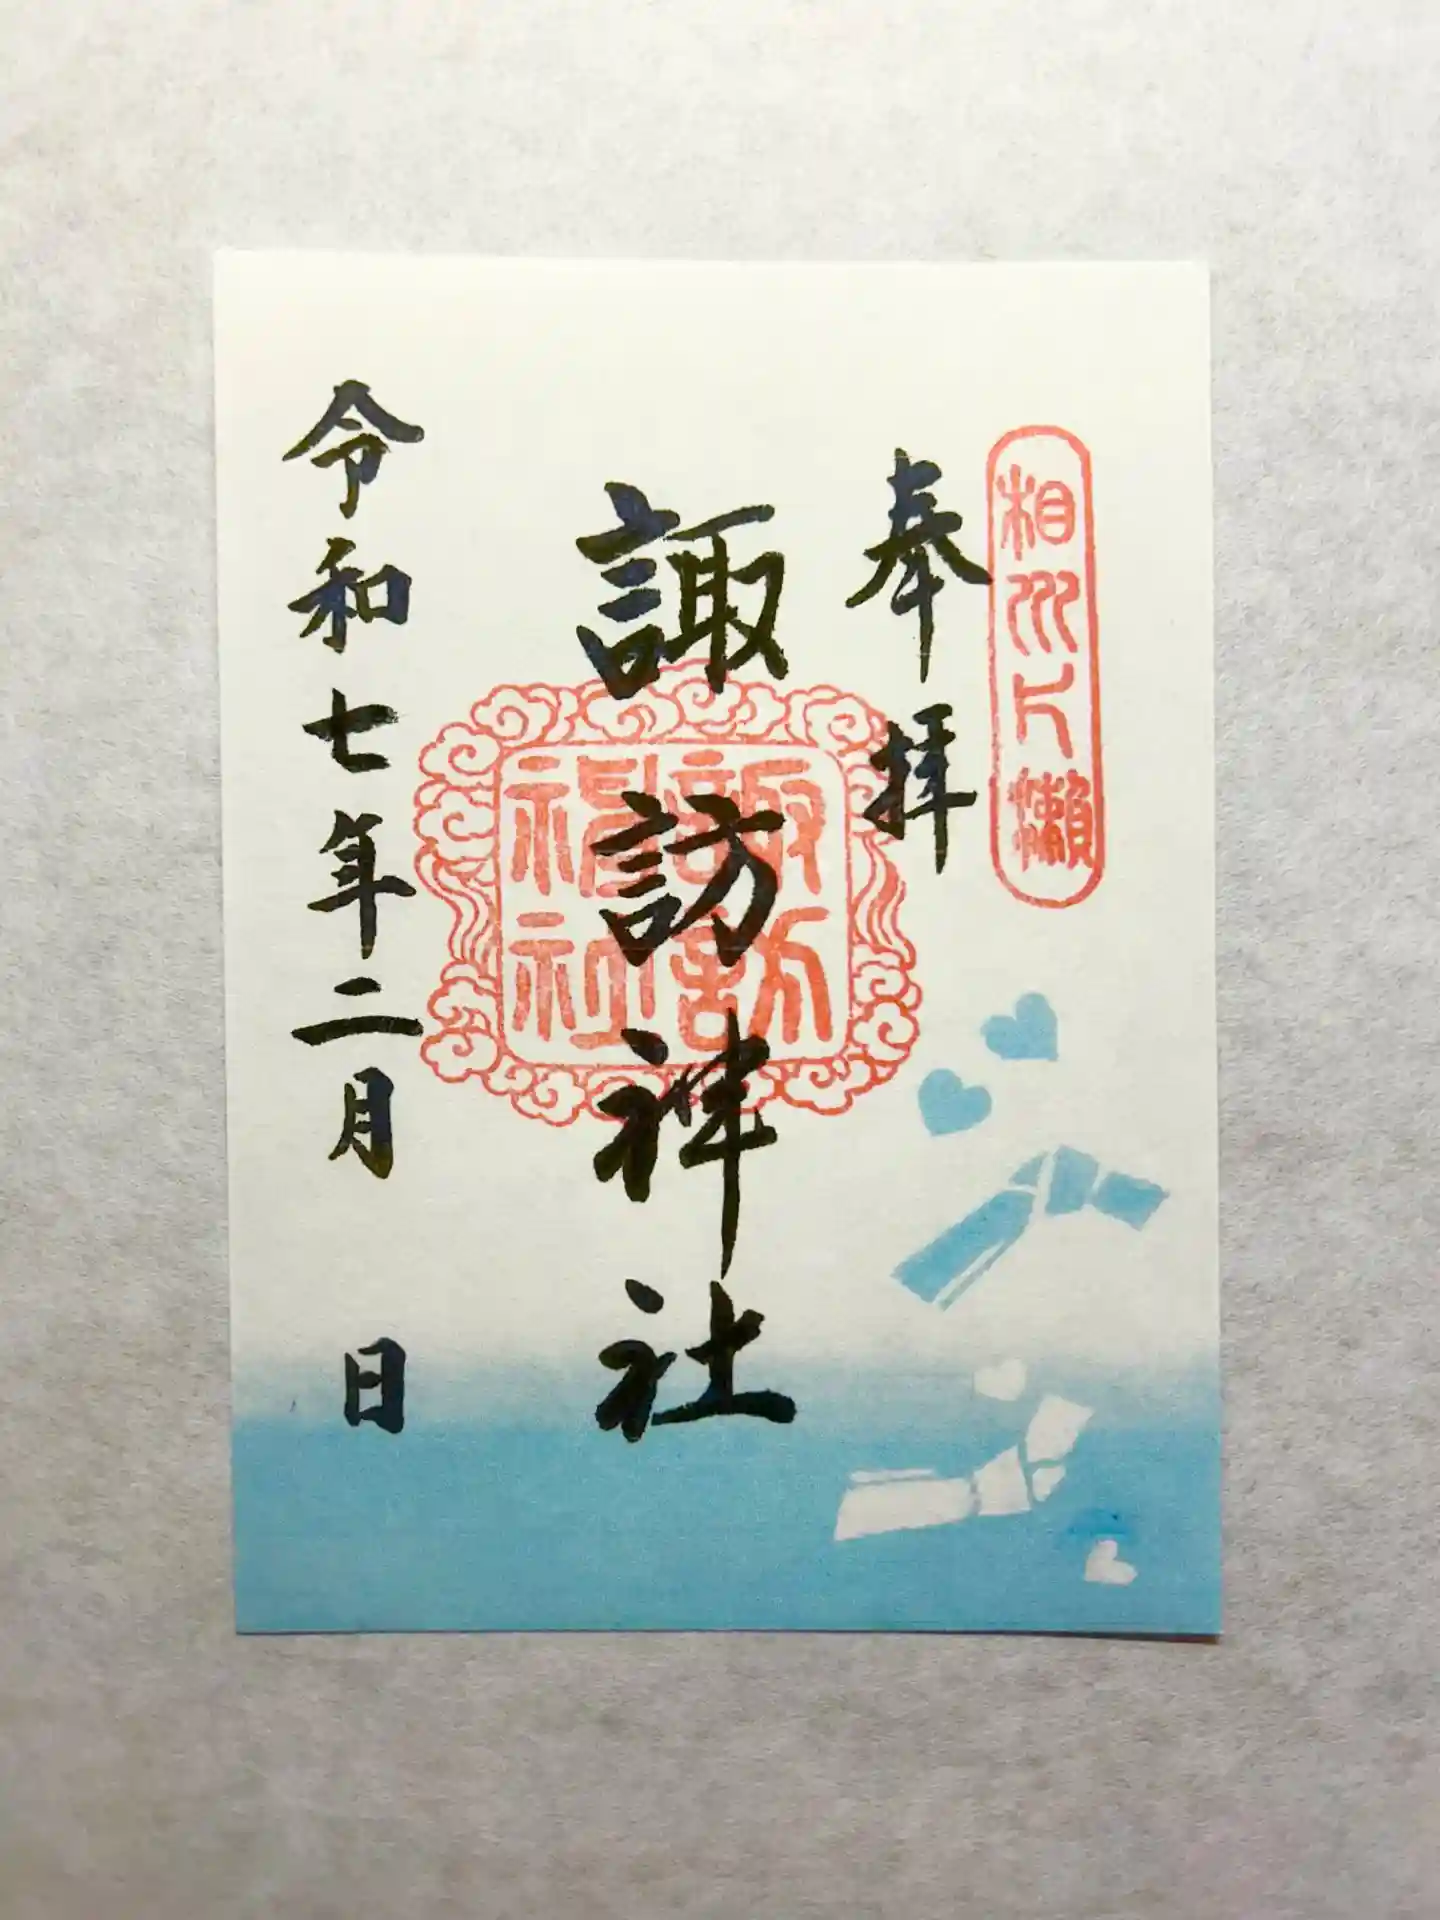 相州片瀬
奉拝
諏訪神社
諏訪
神社
令和七年二月 日